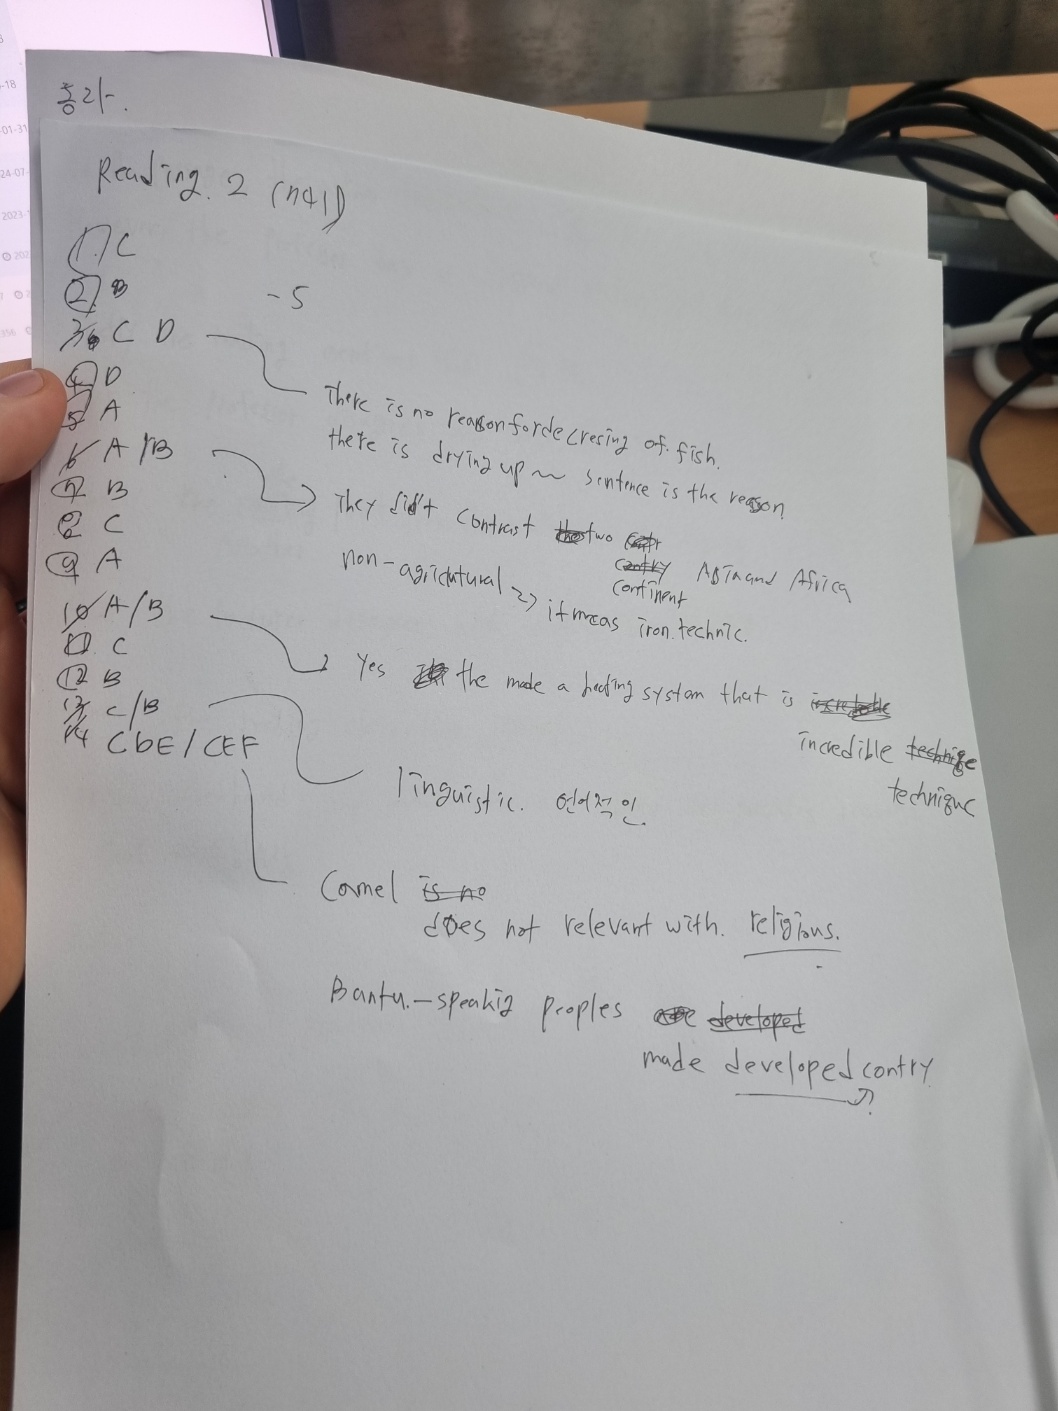 Reading. 2 (n41)
1. C
2. B
-5
3. C D
4. D
5. A
6. A/B
7. B
8. C
9. A
10. A/B
11. C
12. B
13. C/B
14 CDE/CEF
There is no reason for decresing of fish.
there is drying up ~ sentence is the reason
They did't contrast two continent Asia and Africa
non-agricutural → it meas iron.technic.
Yes the made a heating system that is
incredible
technique
linguistic. 언어적인.
Camel
does not relevant with. religions.
Bantu.-speakig peoples
made developed contry